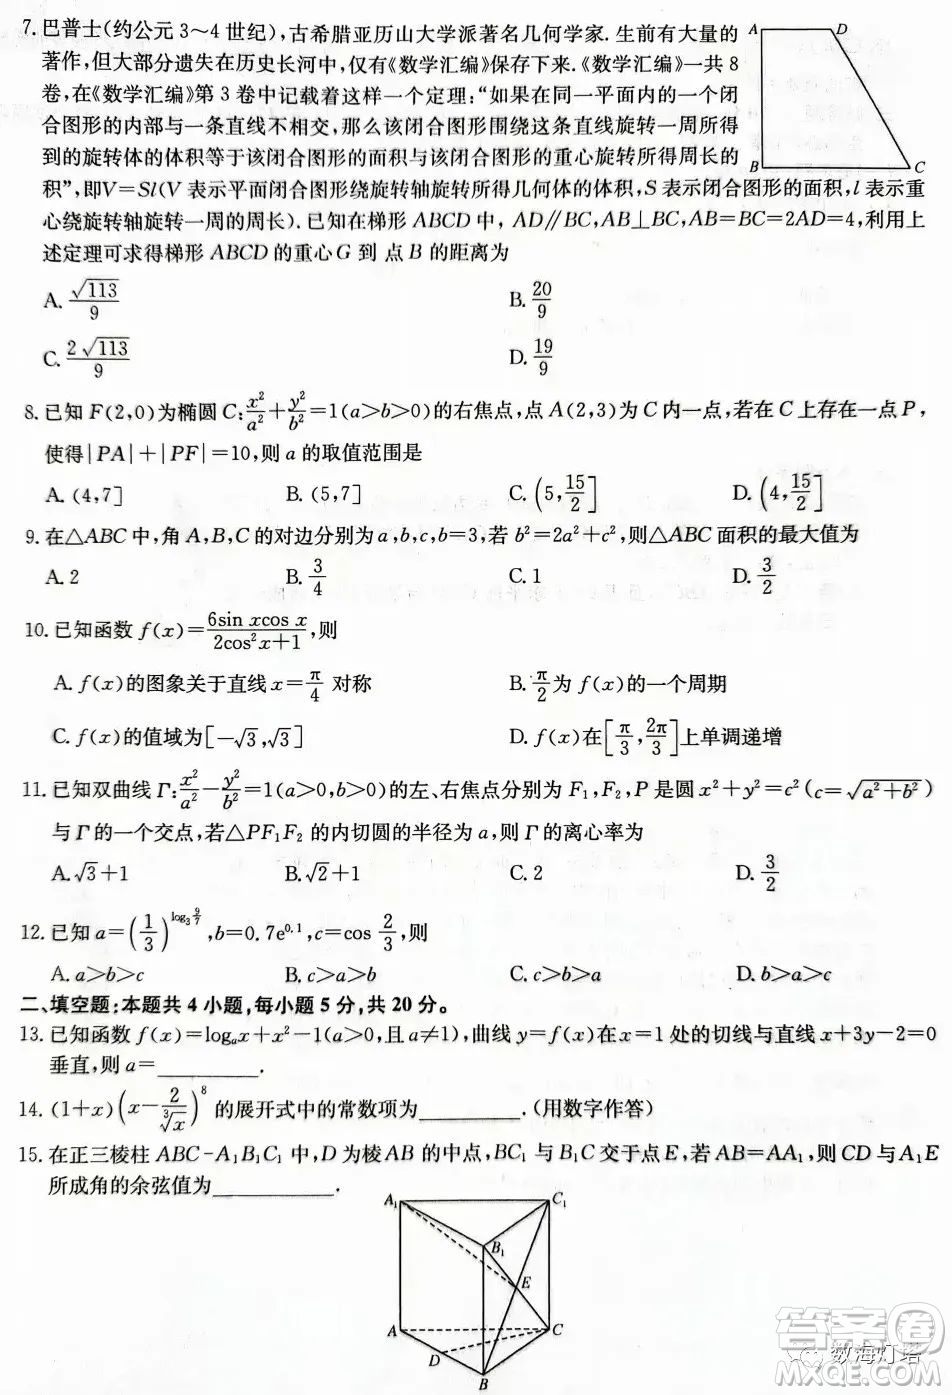 7. 巴普士(约公元 3～4 世纪), 古希腊亚历山大学派著名几何学家. 生前有大量的
著作, 但大部分遗失在历史长河中, 仅有《数学汇编》保存下来.《数学汇编》一共 8
卷, 在《数学汇编》第 3 卷中记载着这样一个定理: “如果在同一平面内的一个闭
合图形的内部与一条直线不相交, 那么该闭合图形围绕这条直线旋转一周所得
到的旋转体的体积等于该闭合图形的面积与该闭合图形的重心旋转所得周长的
积”, 即V=Sl(V 表示平面闭合图形绕旋转轴旋转所得几何体的体积, S 表示闭合图形的面积, l 表示重
心绕旋转轴旋转一周的周长). 已知在梯形 ABCD 中, AD∥BC, AB⊥BC, AB=BC=2AD=4, 利用上
述定理可求得梯形 ABCD 的重心 G 到 点 B 的距离为
A D
B C
A. √113/9 B. 20/9
C. 2√113/9 D. 19/9
8. 已知 F(2,0)为椭圆 C: x²/a²+y²/b²=1(a>b>0)的右焦点, 点 A(2,3)为 C 内一点, 若在 C 上存在一点 P,
使得|PA|+|PF|=10, 则 a 的取值范围是
A. (4,7] B. (5,7] C. (5, 15/2] D. (4, 15/2]
9. 在△ABC 中, 角 A,B,C 的对边分别为 a,b,c, b=3, 若 b²=2a²+c², 则△ABC 面积的最大值为
A. 2 B. 3/4 C. 1 D. 3/2
10. 已知函数 f(x)=6sin xcos x/(2cos²x+1), 则
A. f(x)的图象关于直线 x=π/4 对称 B. π/2为 f(x)的一个周期
C. f(x)的值域为[-√3,√3] D. f(x)在[π/3, 2π/3]上单调递增
11. 已知双曲线 Γ: x²/a²-y²/b²=1(a>0,b>0)的左、右焦点分别为 F₁,F₂, P 是圆 x²+y²=c²(c=√(a²+b²))
与 Γ 的一个交点, 若△PF₁F₂ 的内切圆的半径为 a, 则 Γ 的离心率为
A. √3+1 B. √2+1 C. 2 D. 3/2
12. 已知 a=(1/3)^(log₃ 9/7), b=0.7e^0.1, c=cos 2/3, 则
A. a>b>c B. c>a>b C. c>b>a D. b>a>c
二、填空题: 本题共 4 小题, 每小题 5 分, 共 20 分。
13. 已知函数 f(x)=logₐx+x²-1(a>0, 且 a≠1), 曲线 y=f(x)在 x=1 处的切线与直线 x+3y-2=0
垂直, 则 a=________.
14. (1+x)(x-2/∛x)⁸ 的展开式中的常数项为________. (用数字作答)
15. 在正三棱柱 ABC-A₁B₁C₁ 中, D 为棱 AB 的中点, BC₁ 与 B₁C 交于点 E, 若 AB=AA₁, 则 CD 与 A₁E
所成角的余弦值为________.
A₁ C₁
B₁
E
A C
D
B
答案圈
数海灯塔